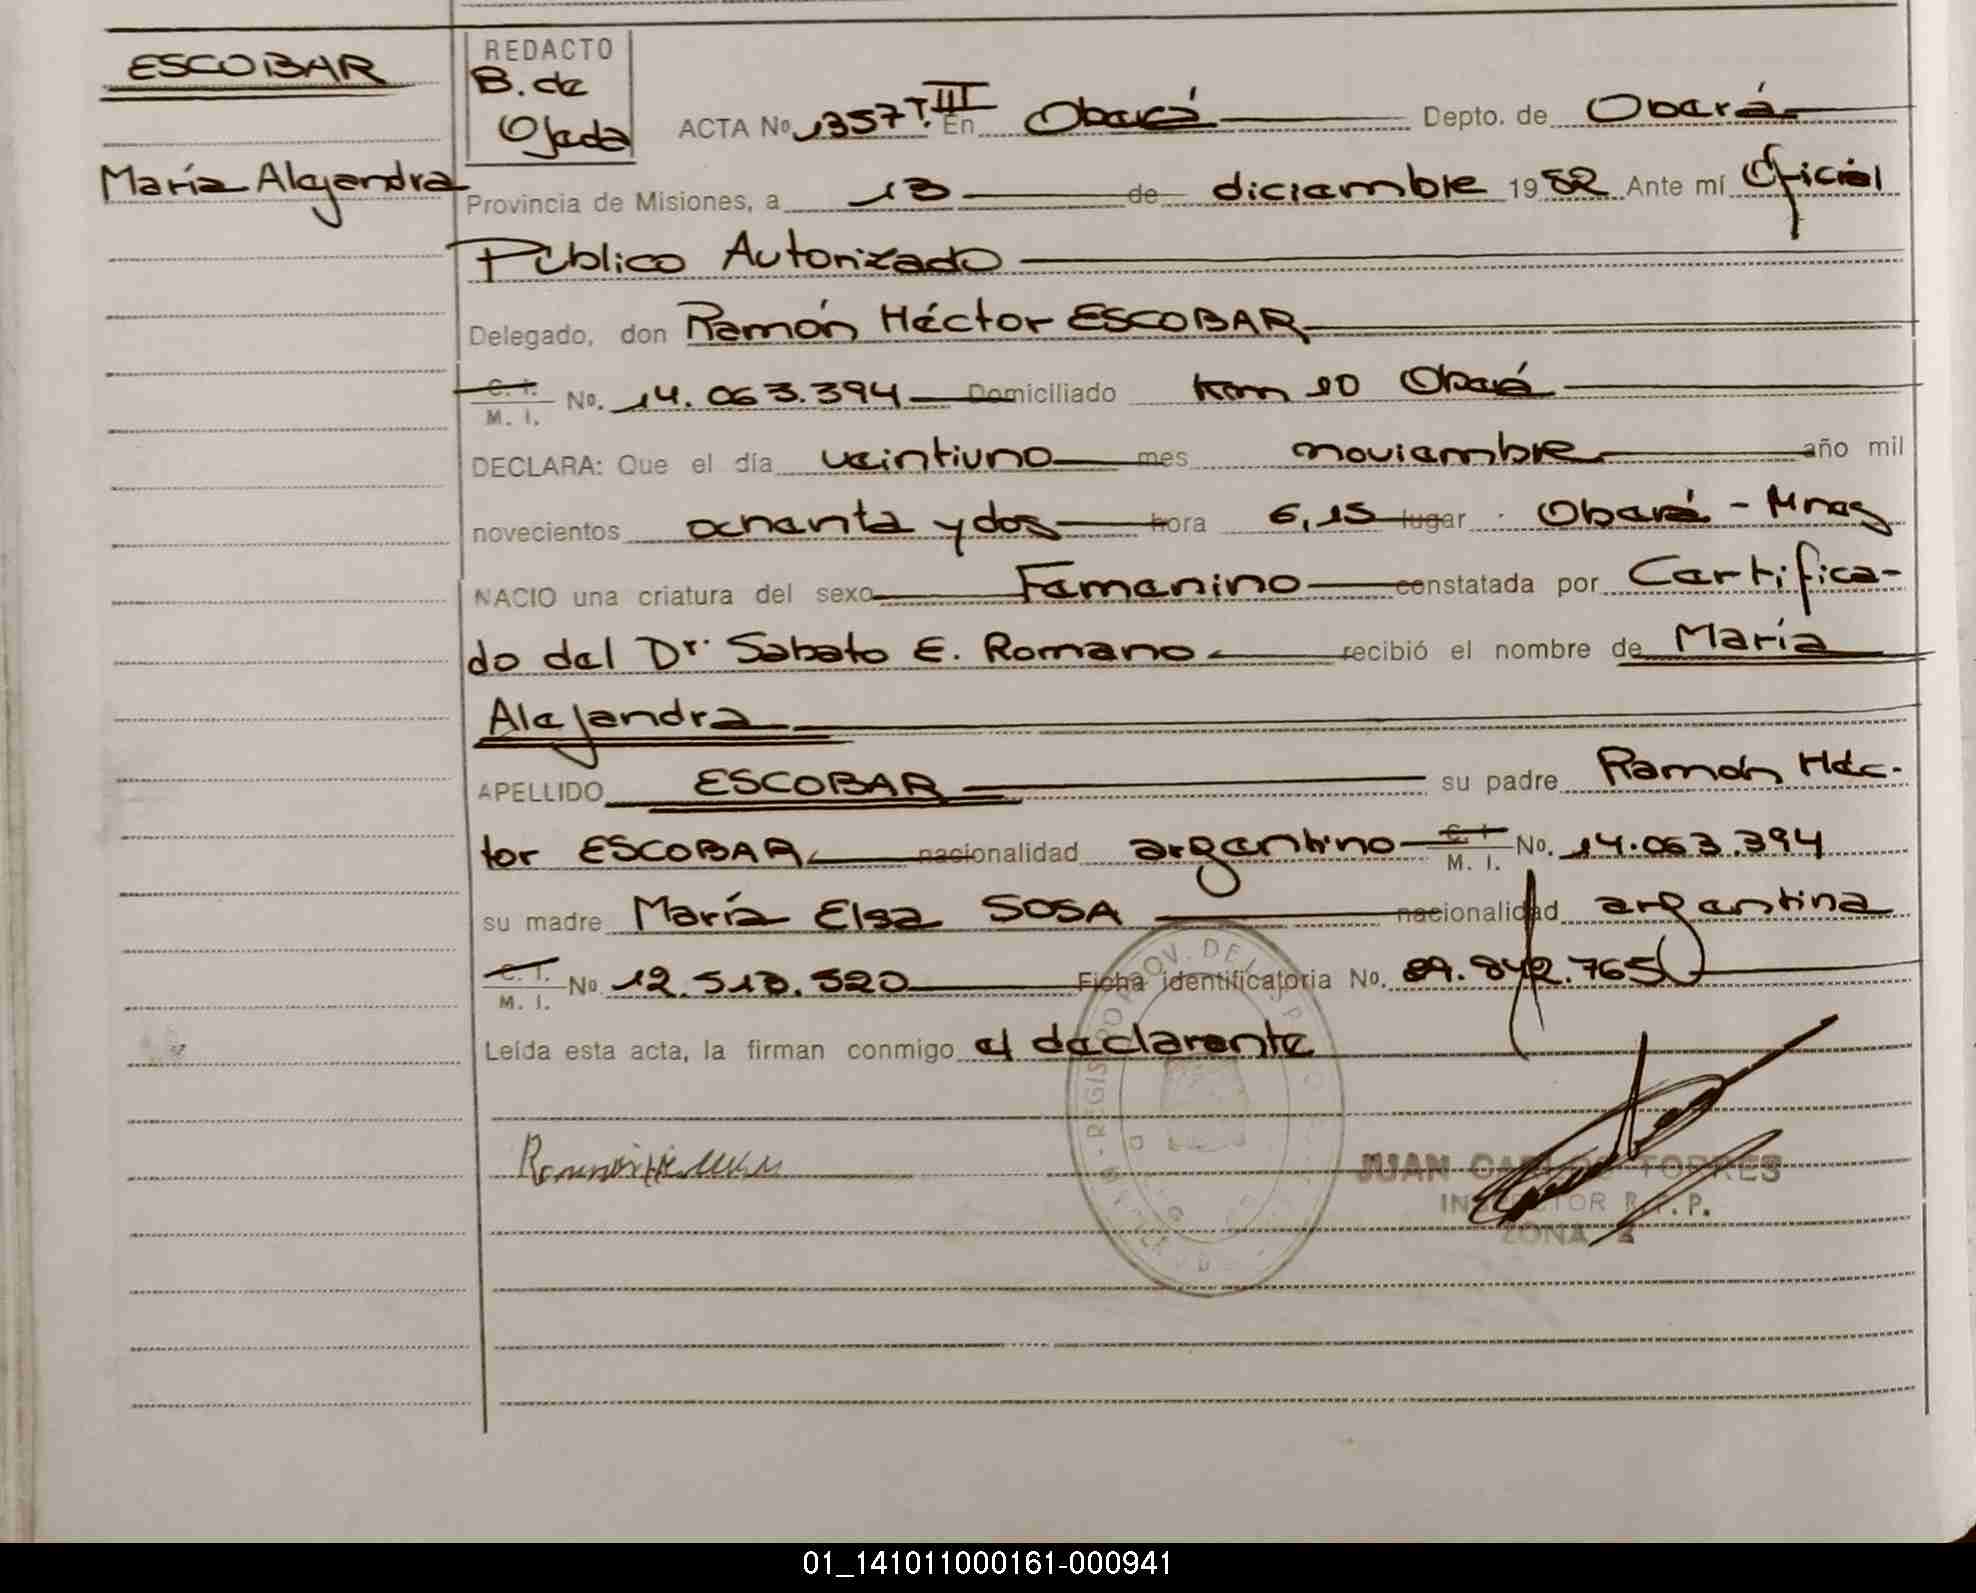 ESCOBAR
María Alejandra
REDACTO
B. de
Ojeda
ACTA No. 1357 T. III En Oberá Depto. de Oberá
Provincia de Misiones, a 13 de diciembre 1982 Ante mí Oficial
Público Autorizado
Delegado, don Ramón Héctor ESCOBAR
C. I.
M. I. No. 14.063.394 Domiciliado Km 10 Oberá
DECLARA: Que el día veintiuno mes noviembre año mil
novecientos ochenta y dos hora 6,15 lugar Oberá - Mnes
NACIO una criatura del sexo Femenino constatada por Certifica-
do del Dr. Sabato E. Romano recibió el nombre de María
Alejandra
APELLIDO ESCOBAR su padre Ramón Héc-
tor ESCOBAR nacionalidad argentino C. I.
M. I. No. 14.063.394
su madre María Elsa SOSA nacionalidad argentina
C. I.
M. I. No 12.513.520 Ficha identificatoria No. 29.842.765
Leída esta acta, la firman conmigo el declarante
JUAN CARLOS TORRES
INSPECTOR R. P. P.
ZONA
01_141011000161-000941